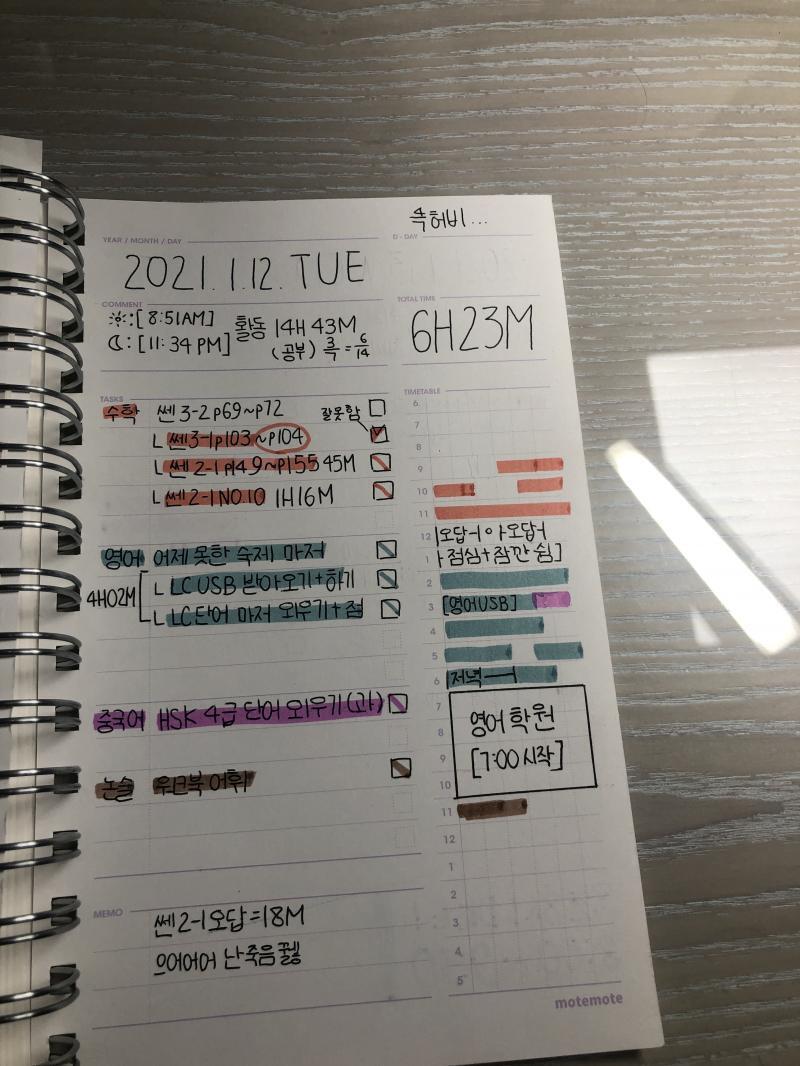 특허비...
YEAR / MONTH / DAY
D-DAY
2021.1.12.TUE
COMMENT
:[8:51AM] 활동 14H 43M
:[11:34 PM] (공부) 3/7 = 6/14
TOTAL TIME
6H23M
TASKS
수학 쎈 3-2 p69~p72 잘못함
ㄴ 쎈3-1 p103~p104
ㄴ 쎈 2-1 p149~p155 45M
ㄴ 쎈 2-1 NO.10 1H16M
영어 어제 못한 숙제 마저
4H02M
ㄴ LC USB 받아오기+하기
ㄴ LC단어 마저 외우기+점
중국어 HSK 4급 단어 외우기(과)
논술 워크북 어휘
TIMETABLE
6
7
8
9
10
11
12 오답ㅓ 아오답ㅓ
1 ㅏ점심+잠깐 쉼]
2
3 [영어USB]
4
5
6 저녁
7 영어 학원
8
9 [7:00 시작]
10
11
12
1
2
3
4
5
MEMO
쎈 2-1 오답=18M
으어어어 난죽음꿻
motemote